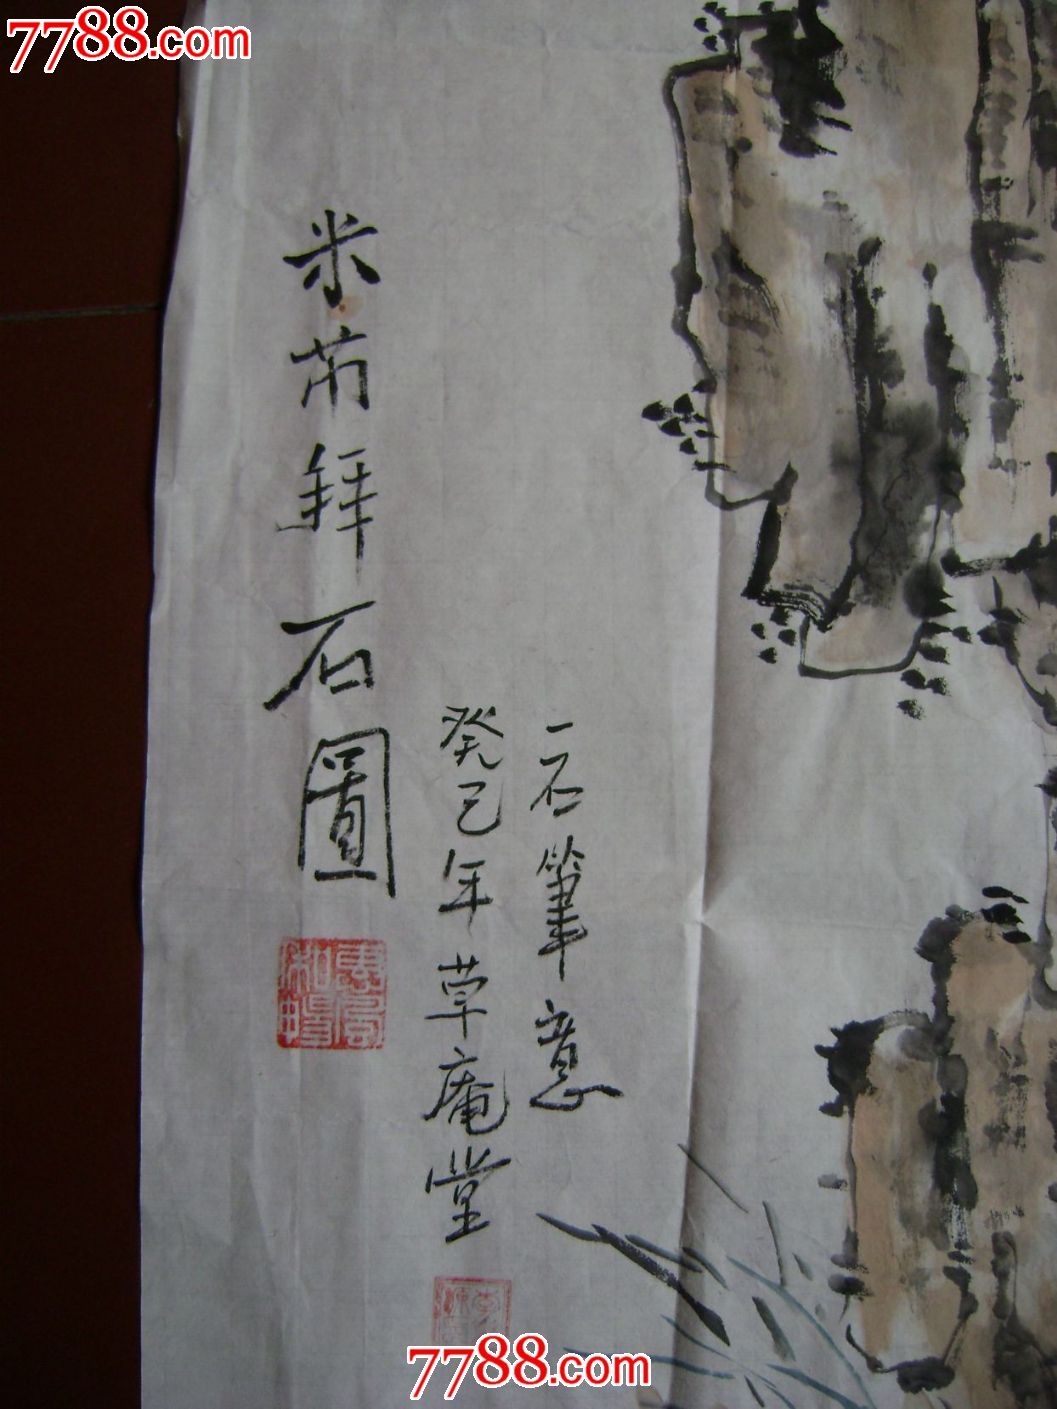 7788.com
米芾拜石圖
一石筆意
癸已年草庵堂
7788.com